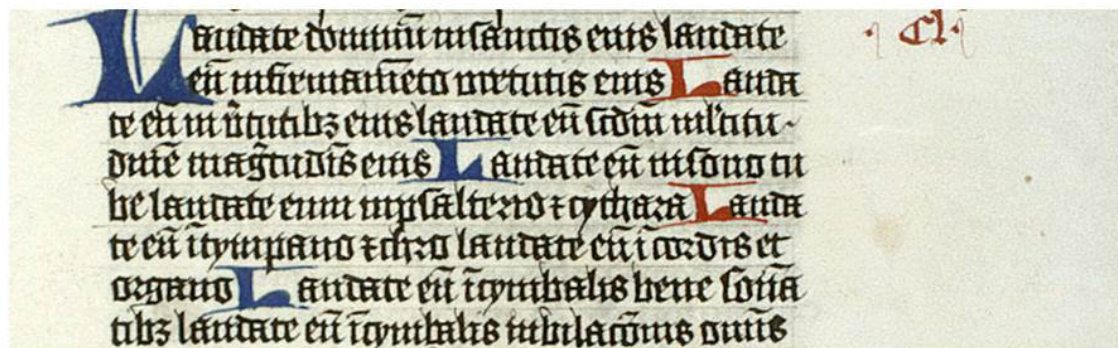 Laudate dominū in sanctis eius laudate
eū in firmamēto virtutis eius Lauda
te eū in v̄tutibȝ eius laudate eū scdm̄ mľtitu-
dinē mag̃tudīs eius Laudate eū in sono tu
be laudate eum in psalterio ⁊ cythara Lauda
te eū ī tympano ⁊ choro laudate eū ī cordis et
organo Laudate eū ī cymbalis bene sonā
tibȝ laudate eū ī cymbalis iubilacōnis omīs
· Cl ·